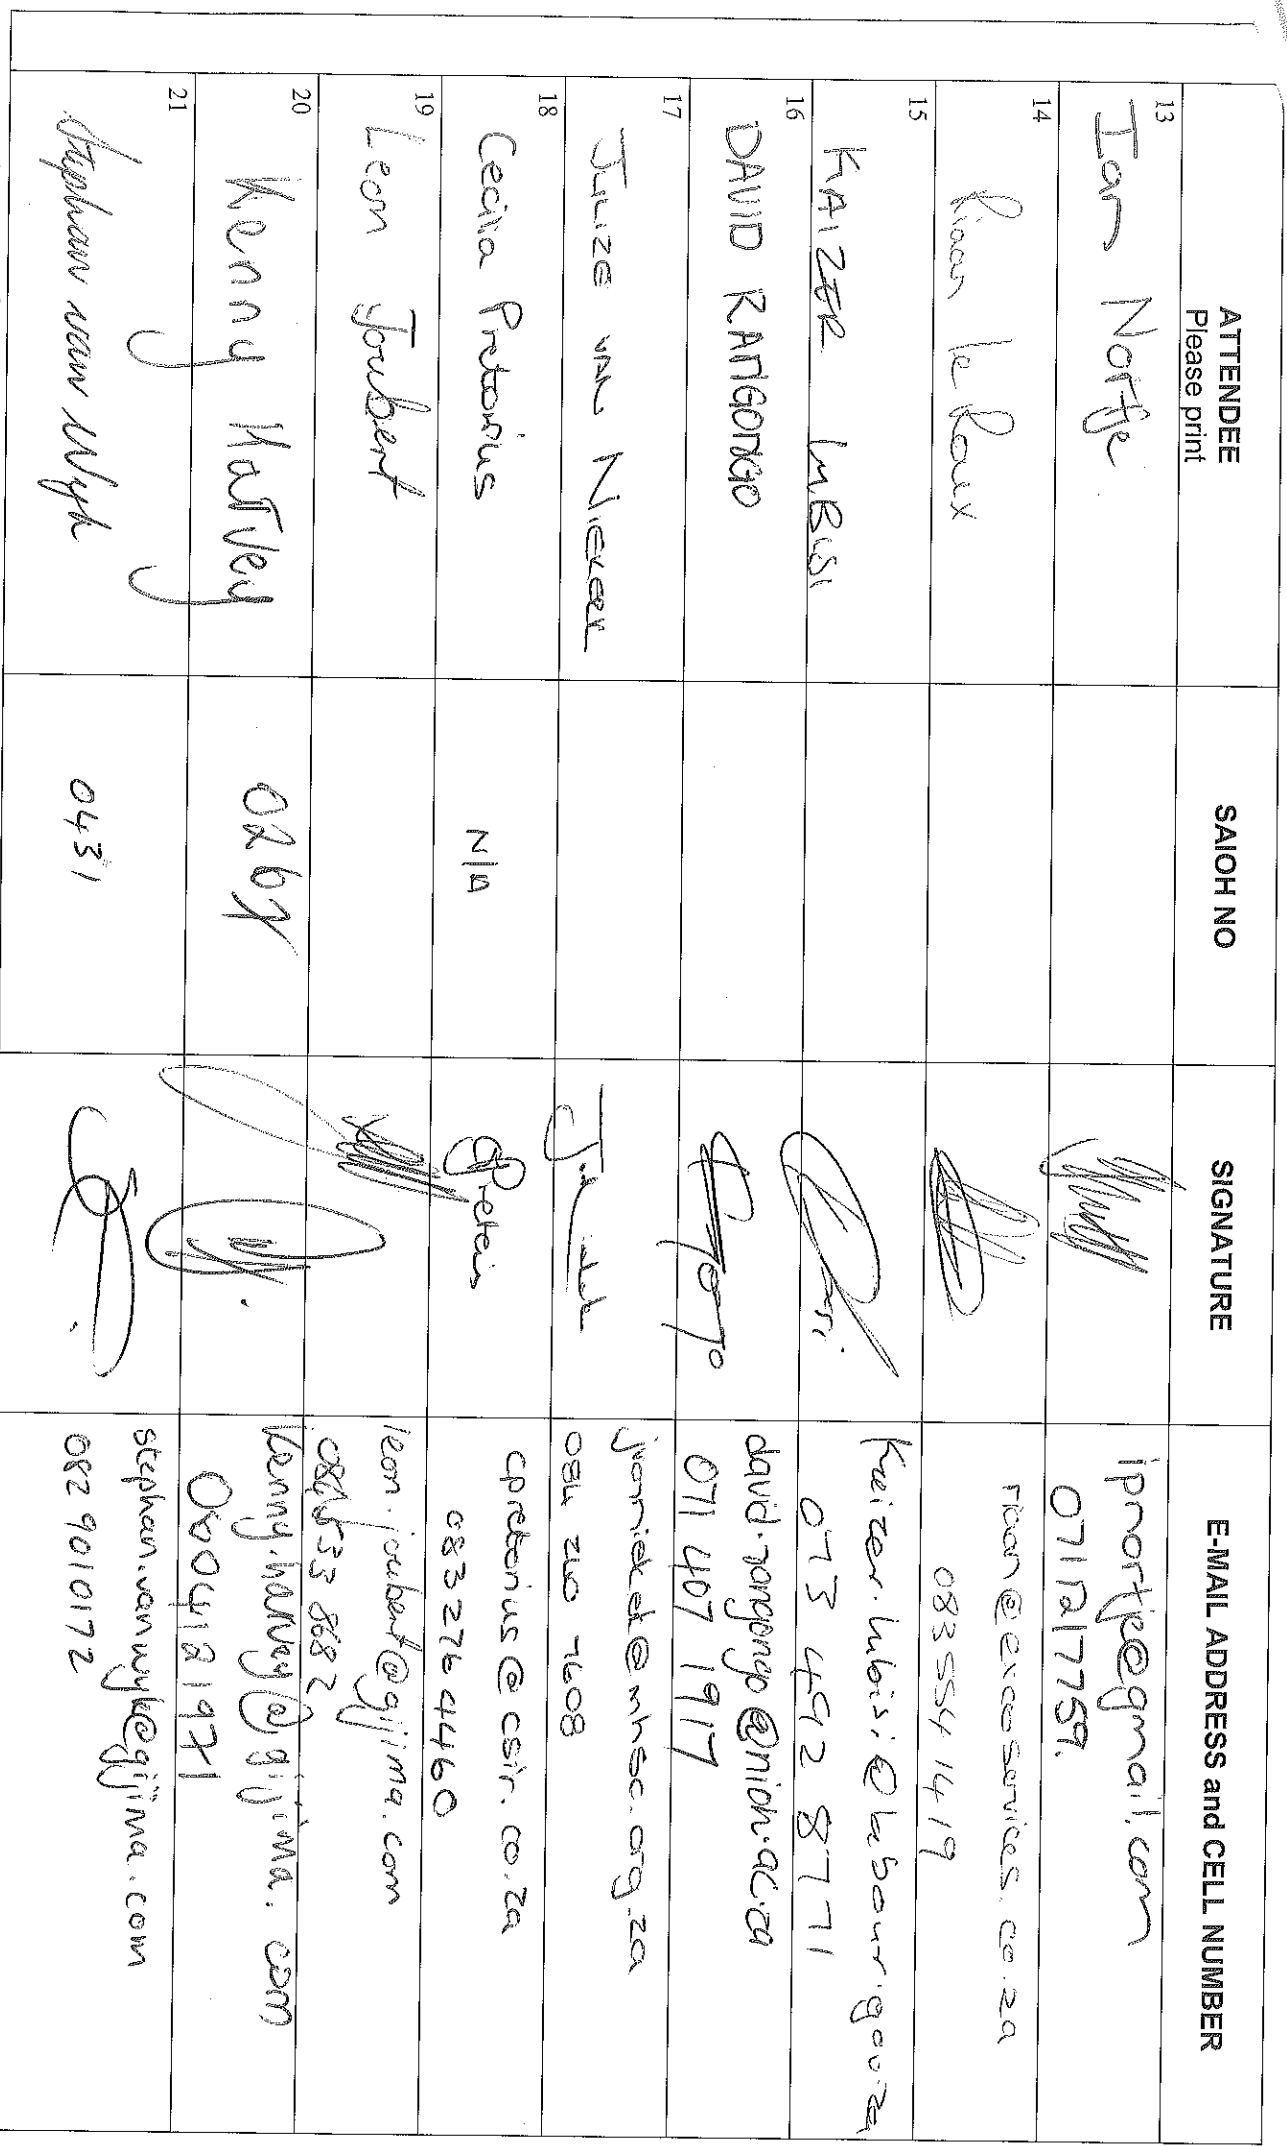 ATTENDEE
Please print
SAIOH NO
SIGNATURE
E-MAIL ADDRESS and CELL NUMBER
13
Ian Nortje
ipnortje@gmail.com
0711217759.
14
Riaan le Roux
riaan@excoservices.co.za
083 554 1419
15
KAIZER LUBISI
Kaizer.lubisi@labour.gov.za
073 492 8771
16
DAVID RANGONGO
david.rangongo@nioh.ac.za
071 407 1917
17
JULIZE VAN NIEKERK
jvanniekerk@mhsc.org.za
084 240 7608
18
Cecilia Pretorius
N/A
cpretorius@csir.co.za
083 276 4460
19
Leon Joubert
leon.joubert@gijima.com
533 8682
20
Kenny Harvey
0267
kenny.harvey@gijima.com
0600412 1971
21
Stephan van Wyk
0431
stephan.vanwyk@gijima.com
082 9010172